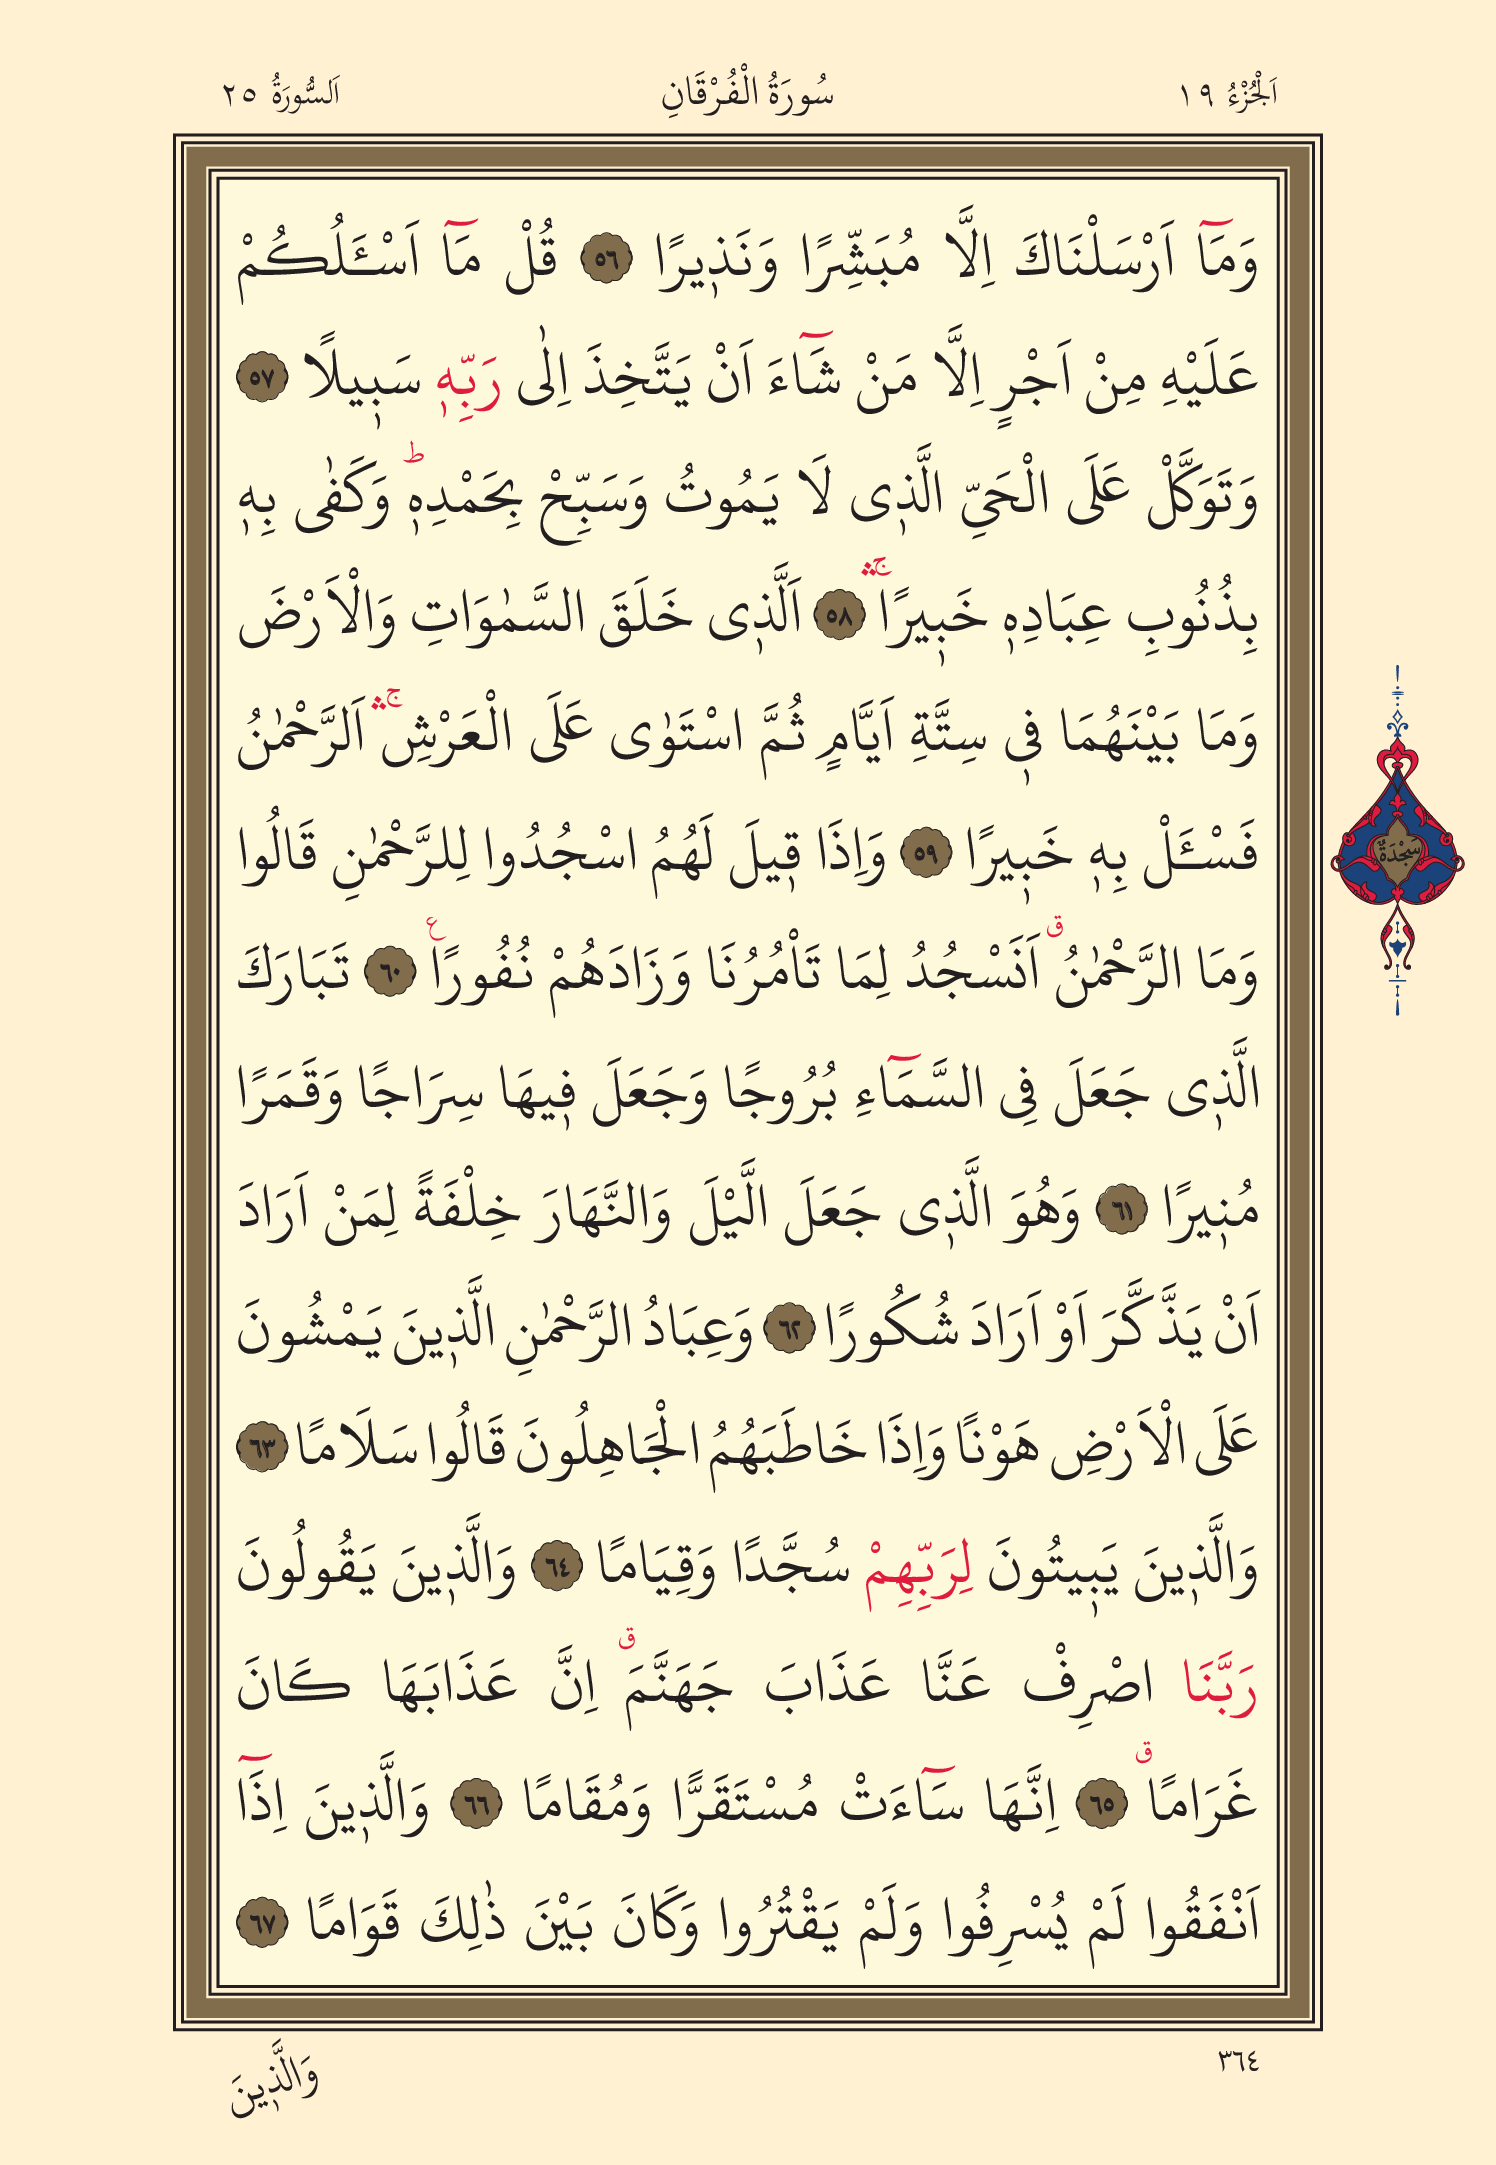 اَلْجُزْءُ ١٩
سُورَةُ الْفُرْقَانِ
اَلسُّورَةُ ٢٥
وَمَٓا اَرْسَلْنَاكَ اِلَّا مُبَشِّرًا وَنَذ۪يرًا ﴿٥٦﴾ قُلْ مَٓا اَسْـَٔلُكُمْ
عَلَيْهِ مِنْ اَجْرٍ اِلَّا مَنْ شَٓاءَ اَنْ يَتَّخِذَ اِلٰى رَبِّه۪ سَب۪يلًا ﴿٥٧﴾
وَتَوَكَّلْ عَلَى الْحَيِّ الَّذ۪ى لَا يَمُوتُ وَسَبِّحْ بِحَمْدِه۪ۜ وَكَفٰى بِه۪
بِذُنُوبِ عِبَادِه۪ خَب۪يرًاۚۛ ﴿٥٨﴾ اَلَّذ۪ى خَلَقَ السَّمٰوَاتِ وَالْاَرْضَ
وَمَا بَيْنَهُمَا ف۪ى سِتَّةِ اَيَّامٍ ثُمَّ اسْتَوٰى عَلَى الْعَرْشِۚۛ اَلرَّحْمٰنُ
فَسْـَٔلْ بِه۪ خَب۪يرًا ﴿٥٩﴾ وَاِذَا ق۪يلَ لَهُمُ اسْجُدُوا لِلرَّحْمٰنِ قَالُوا
وَمَا الرَّحْمٰنُۗ اَنَسْجُدُ لِمَا تَاْمُرُنَا وَزَادَهُمْ نُفُورًا ع ﴿٦٠﴾ تَبَارَكَ
الَّذ۪ى جَعَلَ فِى السَّمَٓاءِ بُرُوجًا وَجَعَلَ ف۪يهَا سِرَاجًا وَقَمَرًا
مُن۪يرًا ﴿٦١﴾ وَهُوَ الَّذ۪ى جَعَلَ الَّيْلَ وَالنَّهَارَ خِلْفَةً لِمَنْ اَرَادَ
اَنْ يَذَّكَّرَ اَوْ اَرَادَ شُكُورًا ﴿٦٢﴾ وَعِبَادُ الرَّحْمٰنِ الَّذ۪ينَ يَمْشُونَ
عَلَى الْاَرْضِ هَوْنًا وَاِذَا خَاطَبَهُمُ الْجَاهِلُونَ قَالُوا سَلَامًا ﴿٦٣﴾
وَالَّذ۪ينَ يَب۪يتُونَ لِرَبِّهِمْ سُجَّدًا وَقِيَامًا ﴿٦٤﴾ وَالَّذ۪ينَ يَقُولُونَ
رَبَّنَا اصْرِفْ عَنَّا عَذَابَ جَهَنَّمَۗ اِنَّ عَذَابَهَا كَانَ
غَرَامًاۗ ﴿٦٥﴾ اِنَّهَا سَٓاءَتْ مُسْتَقَرًّا وَمُقَامًا ﴿٦٦﴾ وَالَّذ۪ينَ اِذَٓا
اَنْفَقُوا لَمْ يُسْرِفُوا وَلَمْ يَقْتُرُوا وَكَانَ بَيْنَ ذٰلِكَ قَوَامًا ﴿٦٧﴾
سَجْدَةٌ
٣٦٤
وَالَّذ۪ينَ